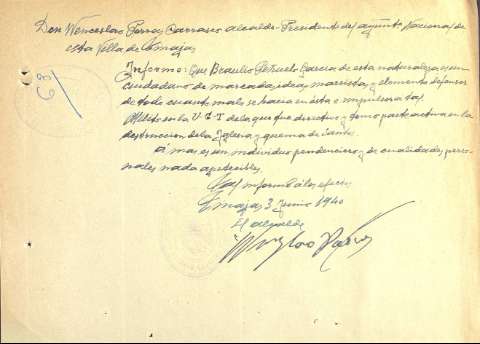 Don Wenceslao Parras Carrasco alcalde-Presidente del ayunt. Nacional de
esta Villa de
Informo: Que Braulio Peñuelo Garcia de esta naturaleza es un
ciudadano de marcadas ideas marxistas y elemento defensor
de todo cuanto malo se hacia en esta o impulsara tal
Milito en la U.G.T de la que fue directivo y tomo parte activa en la
destruccion de la Iglesia y quema de Santos.
a mas es un individuo pendenciero y de cualidades perso-
nales nada apetecibles.
informo á los efectos
3 Junio 1940
El alcalde
Wenceslao Parras
89